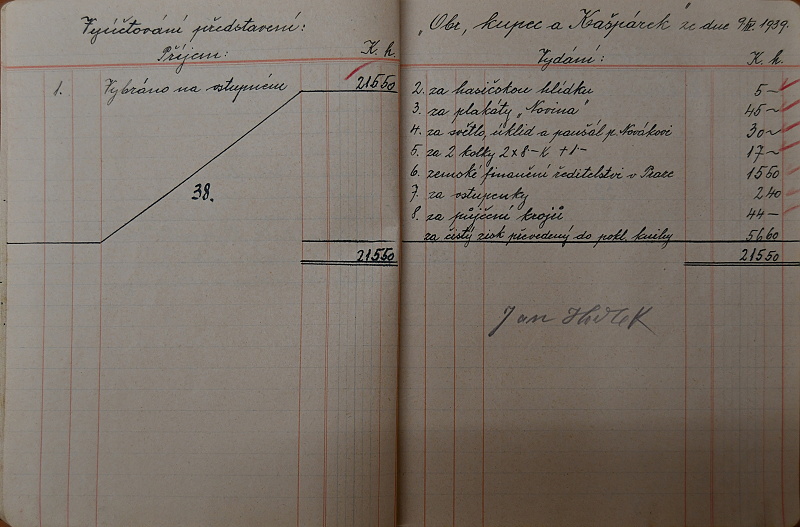 Vyúčtování představení:
Příjem: K. h.
1. Vybráno na vstupném 215 50
38.
215 50
„Obr, kupec a Kašpárek" ze dne 9/IV. 1939.
Vydání: K. h.
2. za hasičskou hlídku 5 —
3. za plakáty „Novina" 45 —
4. za světlo, úklid a paušál p. Novákovi 30 —
5. za 2 kolky 2x8 – K + 1 – 17 —
6. zemské finanční ředitelství v Praze 15 50
7. za vstupenky 2 40
8. za půjčení krojů 44 —
za čistý zisk převedený do pokl. knihy 56 60
215 50
Jan